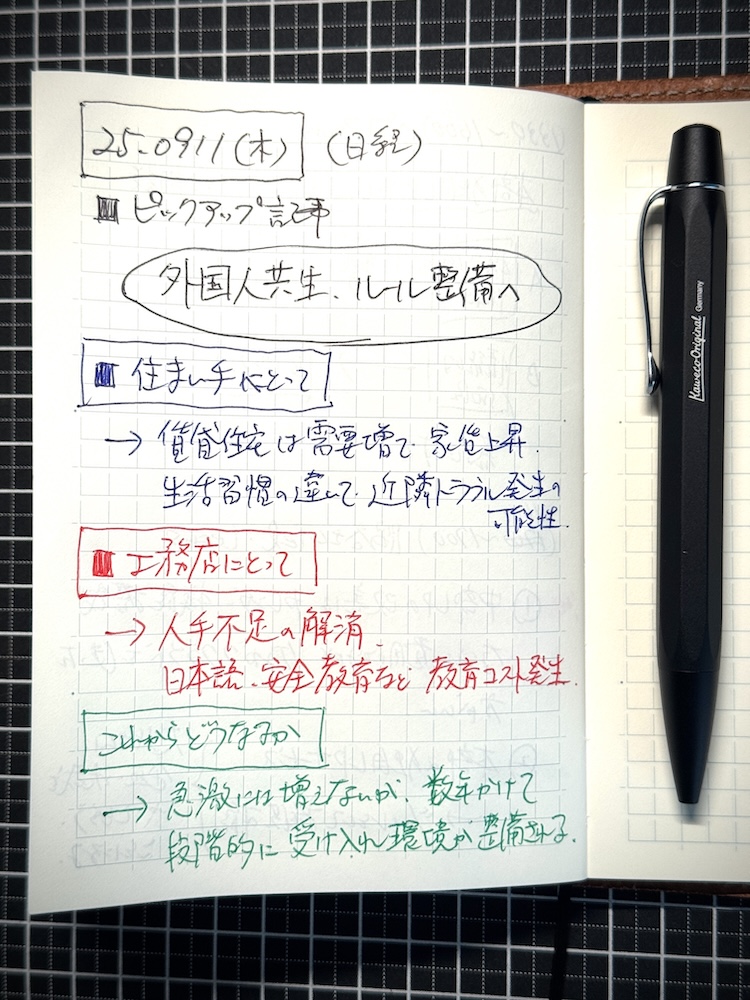 25.0911(木) (日経)
■ ピックアップ記事
外国人共生、ルール整備へ
■ 住まい手にとって
→ 賃貸住宅は需要増で家賃上昇.
生活習慣の違いで近隣トラブル発生の
可能性.
■ 工務店にとって
→ 人手不足の解消、
日本語、安全教育など教育コスト発生.
これからどうなるか
→ 急激には増えないが、数年かけて
段階的に受け入れ環境が整備される.
Kaweco Original Germany